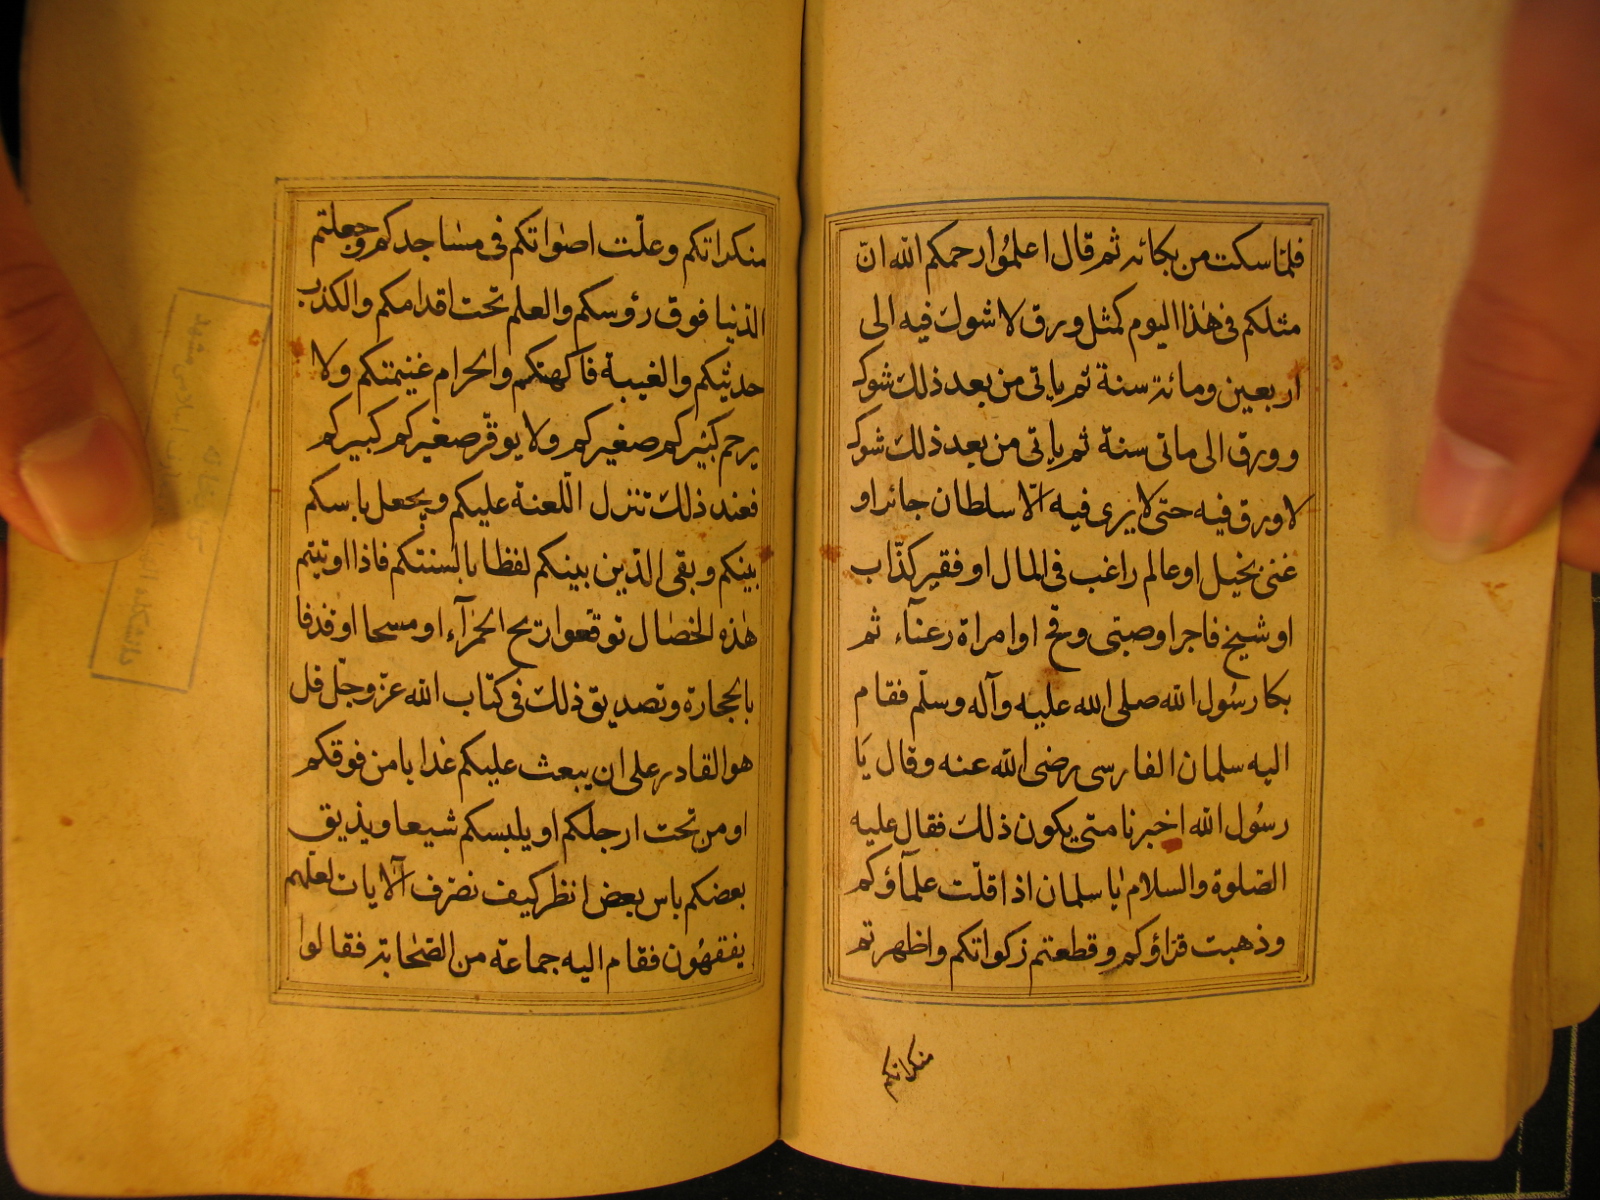 فلمّا سكت من بكائه ثم قال اعلمُوا رحمكم الله انّ
مثلكم فى هٰذا اليوم كمثل ورق لا شوك فيه الى
اربعين ومائة سنة ثم ياتى من بعد ذلك شوك
وورق الى ماتى سنة ثم ياتى من بعد ذلك شوك
لا ورق فيه حتى لا يرى فيه الّا سلطان جائر او
غنى بخيل او عالم راغب فى المال او فقير كذّاب
او شيخ فاجر او صبتى وقح او امراة رعنآء ثم
بكا رسُول الله صلى الله عليه وآله وسلّم فقام
اليه سلمان الفارسى رضى الله عنه وقال يَا
رسُول الله اخبرنا متى يكون ذلك فقال عليه
الصّلوة والسلام يا سلمان اذا قلّت علمآؤكم
وذهبت قرّاؤكم وقطعتم زكواتكم واظهرتم
منكراتكم
منكراتكم وعلّت اصواتكم فى مساجدكم وجعلتم
الدّنيا فوق رؤسكم والعلم تحت اقدامكم والكذب
حديثكم والغيبة فاكهتكم والحرام غنيمتكم ولا
يرحم كبيركم صغيركم ولا يوقّر صغيركم كبيركم
فعند ذلك تنزل الّلعنة عليكم ويجعل باسكم
بينكم وبقى الدّين بينكم لفظا بالسنتكم فاذا اوتيتم
هٰذه الخصال توقعوا ريح الحمرآء او مسحا او قذفا
بالحجارة وتصديق ذلك فى كتاب الله عزّ وجلّ قل
هو القادر على ان يبعث عليكم عذابا من فوقكم
او من تحت ارجلكم او يلبسكم شيعا ويذيق
بعضكم باس بعض انظر كيف نصرّف الآيات لعلّهم
يفقهُون فقام اليه جماعة من الصّحابة فقالوا